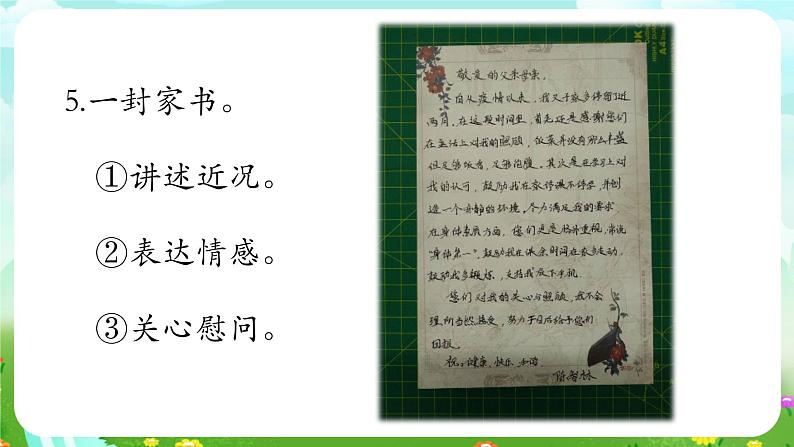 5.一封家书。
①讲述近况。
②表达情感。
③关心慰问。
A4
敬爱的父亲母亲,
自从疫情以来,我又于家多停留了近
两月,在这段时间里,首先还是感谢您们
在生活上对我的照顾,饭菜并没有那么丰盛
但足够饭香,足够饱腹。其次是在学习上对
我的认可,鼓励我在家停课不停学,并创
造一个安静的环境。尽力满足我的要求
在身体素质方面,您们更是格外重视,常说
“身体第一”,鼓励我在课余时间在家多运动,
鼓励我多锻炼,支持我放下手机
您们对我的关心与照顾,我不会
理所当然接受,努力于日后给予您们
回报。
祝:健康、快乐、和谐